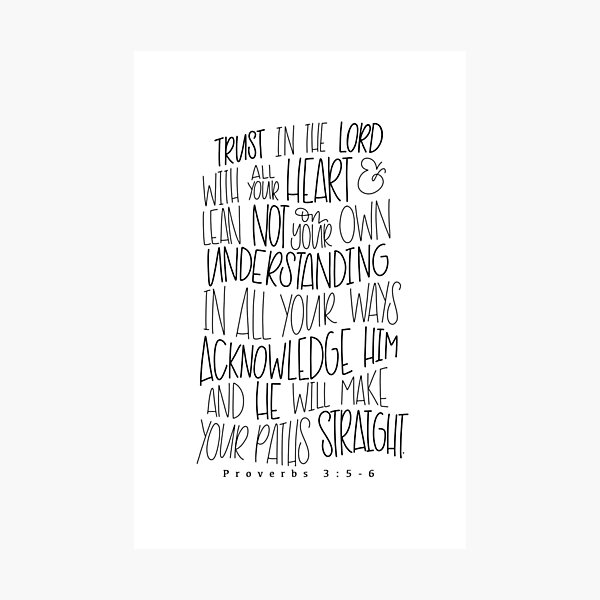 TRUST IN THE LORD
WITH ALL YOUR HEART &
LEAN NOT on YOUR OWN
UNDERSTANDING
IN ALL YOUR WAYS
ACKNOWLEDGE HIM
AND HE WILL MAKE
YOUR PATHS STRAIGHT.
Proverbs 3:5-6